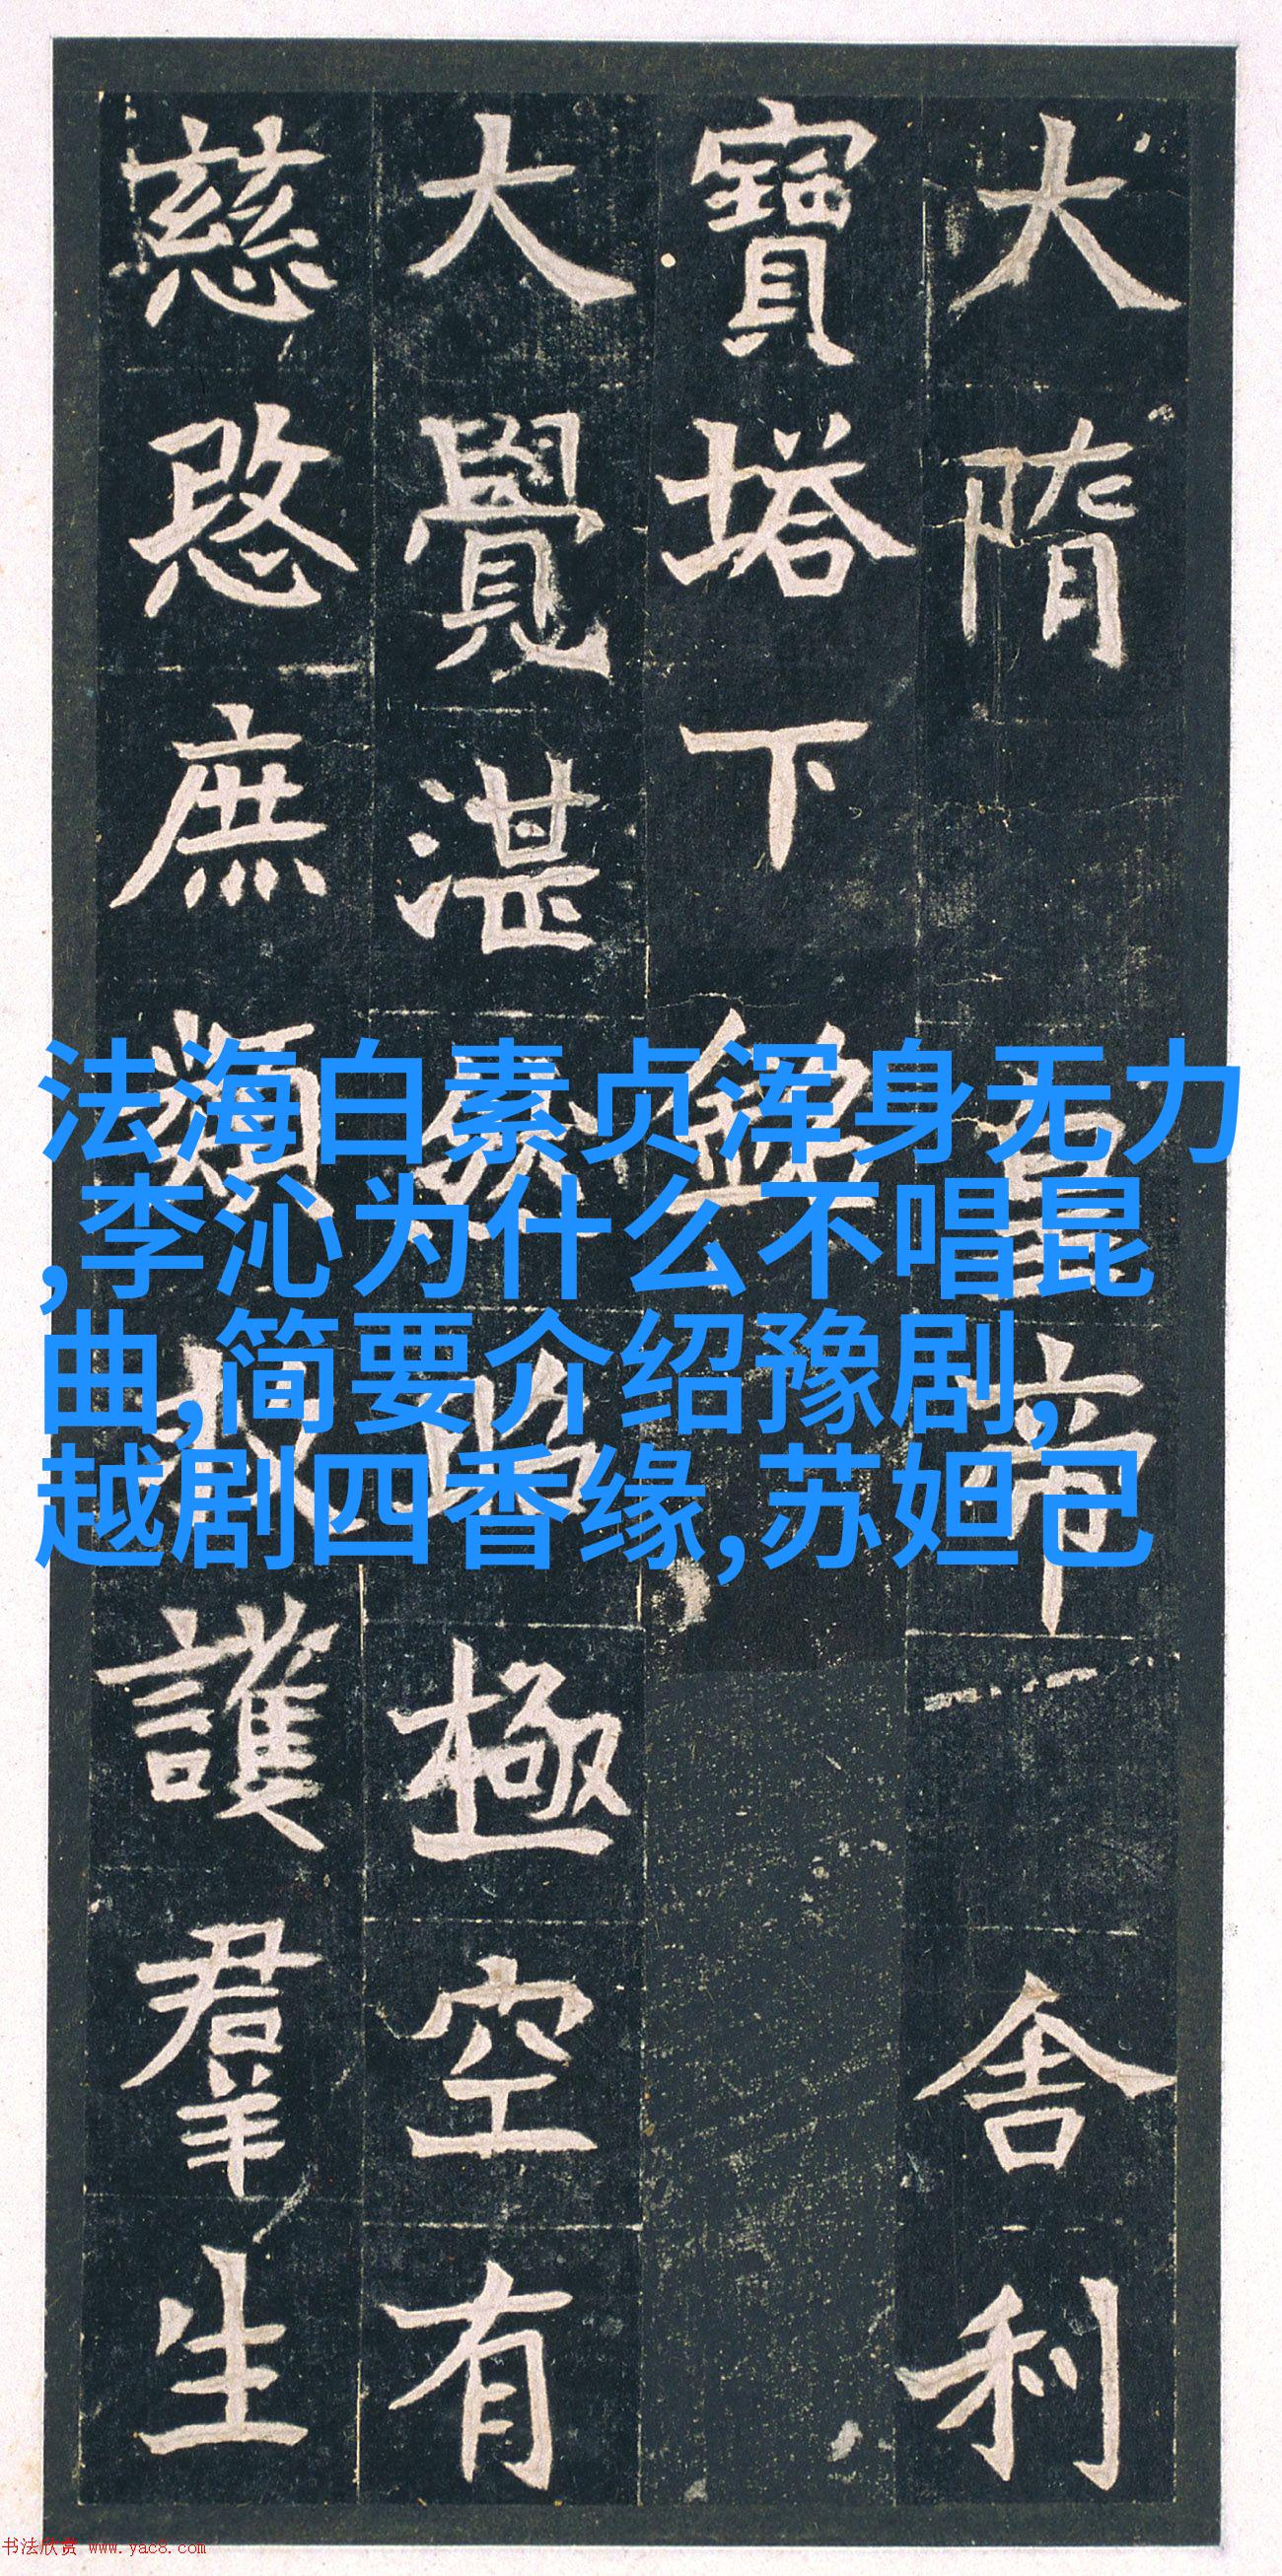 大隋 皇帝 舍利
寶塔下 銘
大覺湛 極空有
慈愍庶類 護羣生
法海白素贞浑身无力
,李沁为什么不唱昆
曲,简要介绍豫剧,
越剧四香缘,苏妲己
书法欣赏 www.yac8.com